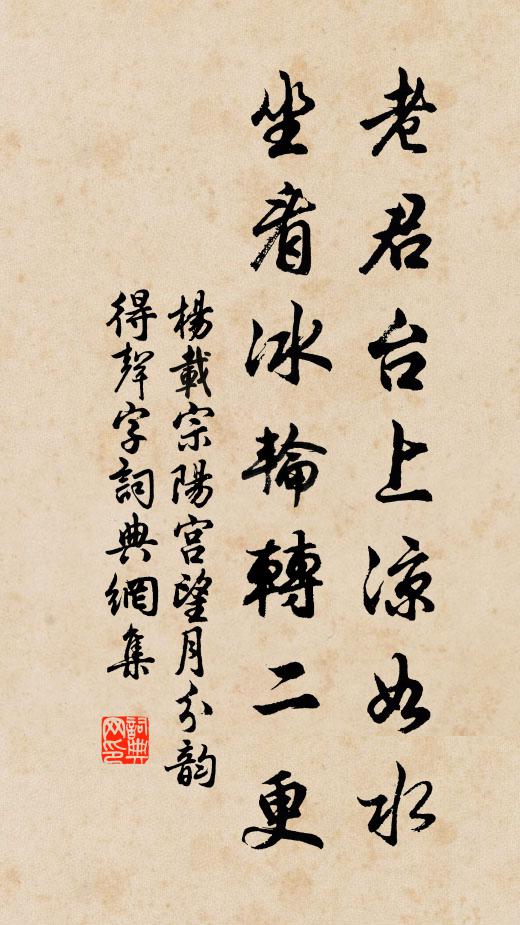 老君台上涼如水
坐看冰輪轉二更
楊載宗陽宮望月分韵
得聲字詞典網集
詞典網印